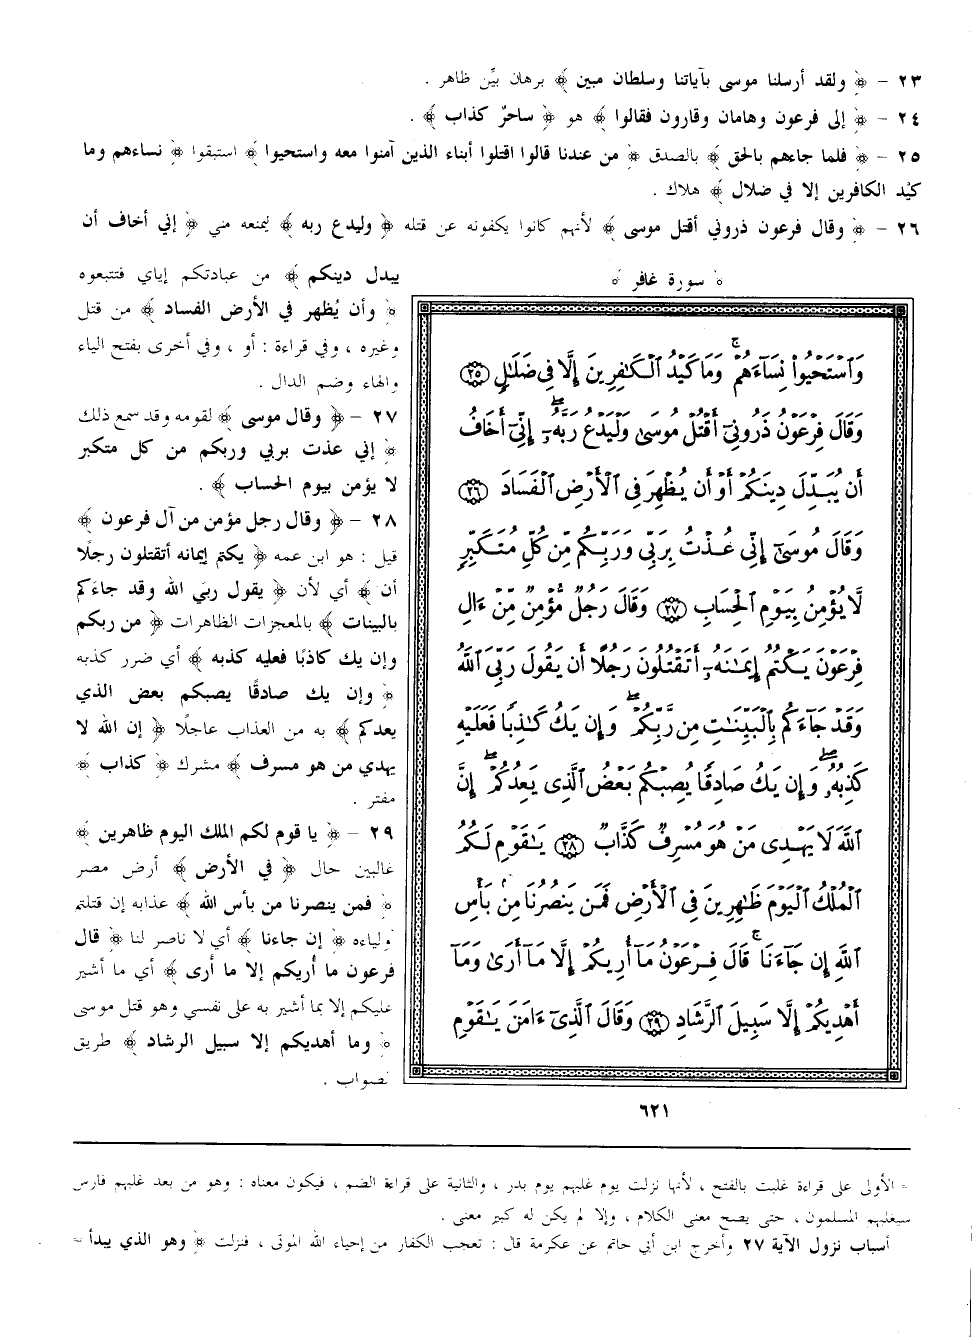 ٢٣ - ﴿ ولقد أرسلنا موسى بآياتنا وسلطان مبين ﴾ برهان بيِّن ظاهر .
٢٤ - ﴿ إلى فرعون وهامان وقارون فقالوا ﴾ هو ﴿ ساحرٌ كذاب ﴾ .
٢٥ - ﴿ فلما جاءهم بالحق ﴾ بالصدق ﴿ من عندنا قالوا اقتلوا أبناء الذين آمنوا معه واستحيوا ﴾ استبقوا ﴿ نساءهم وما
كيْد الكافرين إلا في ضلال ﴾ هلاك .
٢٦ - ﴿ وقال فرعون ذروني أقتل موسى ﴾ لأنهم كانوا يكفونه عن قتله ﴿ وليدع ربه ﴾ ليمنعه مني ﴿ إني أخاف أن
يبدل دينكم ﴾ من عبادتكم إياي فتتبعوه
﴿ وأن يُظهر في الأرض الفساد ﴾ من قتل
وغيره ، وفي قراءة : أو ، وفي أخرى بفتح الياء
والهاء وضم الدال .
٢٧ - ﴿ وقال موسى ﴾ لقومه وقد سمع ذلك
﴿ إني عذت بربي وربكم من كل متكبر
لا يؤمن بيوم الحساب ﴾ .
٢٨ - ﴿ وقال رجل مؤمن من آل فرعون ﴾
قيل : هو ابن عمه ﴿ يكتم إيمانه أتقتلون رجلًا
أن ﴾ أي لأن ﴿ يقول ربي الله وقد جاءكم
بالبينات ﴾ بالمعجزات الظاهرات ﴿ من ربكم
وإن يك كاذبًا فعليه كذبه ﴾ أي ضرر كذبه
﴿ وإن يك صادقًا يصبكم بعض الذي
يعدكم ﴾ به من العذاب عاجلًا ﴿ إن الله لا
يهدي من هو مسرف ﴾ مشرك ﴿ كذاب ﴾
مفتر .
٢٩ - ﴿ يا قوم لكم الملك اليوم ظاهرين ﴾
غالبين حال ﴿ في الأرض ﴾ أرض مصر
﴿ فمن ينصرنا من بأس الله ﴾ عذابه إن قتلتم
أولياءه ﴿ إن جاءنا ﴾ أي لا ناصر لنا ﴿ قال
فرعون ما أريكم إلا ما أرى ﴾ أي ما أشير
عليكم إلا بما أشير به على نفسي وهو قتل موسى
﴿ وما أهديكم إلا سبيل الرشاد ﴾ طريق
الصواب .
﴿ سورة غافر ﴾
وَٱسْتَحْيُوا۟ نِسَآءَهُمْ ۚ وَمَا كَيْدُ ٱلْكَٰفِرِينَ إِلَّا فِى ضَلَٰلٍ ٢٥
وَقَالَ فِرْعَوْنُ ذَرُونِىٓ أَقْتُلْ مُوسَىٰ وَلْيَدْعُ رَبَّهُۥٓ ۖ إِنِّىٓ أَخَافُ
أَن يُبَدِّلَ دِينَكُمْ أَوْ أَن يُظْهِرَ فِى ٱلْأَرْضِ ٱلْفَسَادَ ٢٦
وَقَالَ مُوسَىٰٓ إِنِّى عُذْتُ بِرَبِّى وَرَبِّكُم مِّن كُلِّ مُتَكَبِّرٍ
لَّا يُؤْمِنُ بِيَوْمِ ٱلْحِسَابِ ٢٧ وَقَالَ رَجُلٌ مُّؤْمِنٌ مِّنْ ءَالِ
فِرْعَوْنَ يَكْتُمُ إِيمَٰنَهُۥٓ أَتَقْتُلُونَ رَجُلًا أَن يَقُولَ رَبِّىَ ٱللَّهُ
وَقَدْ جَآءَكُم بِٱلْبَيِّنَٰتِ مِن رَّبِّكُمْ ۖ وَإِن يَكُ كَٰذِبًا فَعَلَيْهِ
كَذِبُهُۥ ۖ وَإِن يَكُ صَادِقًا يُصِبْكُم بَعْضُ ٱلَّذِى يَعِدُكُمْ ۖ إِنَّ
ٱللَّهَ لَا يَهْدِى مَنْ هُوَ مُسْرِفٌ كَذَّابٌ ٢٨ يَٰقَوْمِ لَكُمُ
ٱلْمُلْكُ ٱلْيَوْمَ ظَٰهِرِينَ فِى ٱلْأَرْضِ فَمَن يَنصُرُنَا مِنۢ بَأْسِ
ٱللَّهِ إِن جَآءَنَا ۚ قَالَ فِرْعَوْنُ مَآ أُرِيكُمْ إِلَّا مَآ أَرَىٰ وَمَآ
أَهْدِيكُمْ إِلَّا سَبِيلَ ٱلرَّشَادِ ٢٩ وَقَالَ ٱلَّذِىٓ ءَامَنَ يَٰقَوْمِ
٦٢١
= الأولى على قراءة غلبت بالفتح ، لأنها نزلت يوم غلبهم يوم بدر ، والثانية على قراءة الضم ، فيكون معناه : وهو من بعد غلبهم فارس
سيغلبهم المسلمون ، حتى يصح معنى الكلام ، وإلا لم يكن له كبير معنى .
أسباب نزول الآية ٢٧ وأخرج ابن أبي حاتم عن عكرمة قال : تعجب الكفار من إحياء الله الموتى ، فنزلت ﴿ وهو الذي يبدأ =